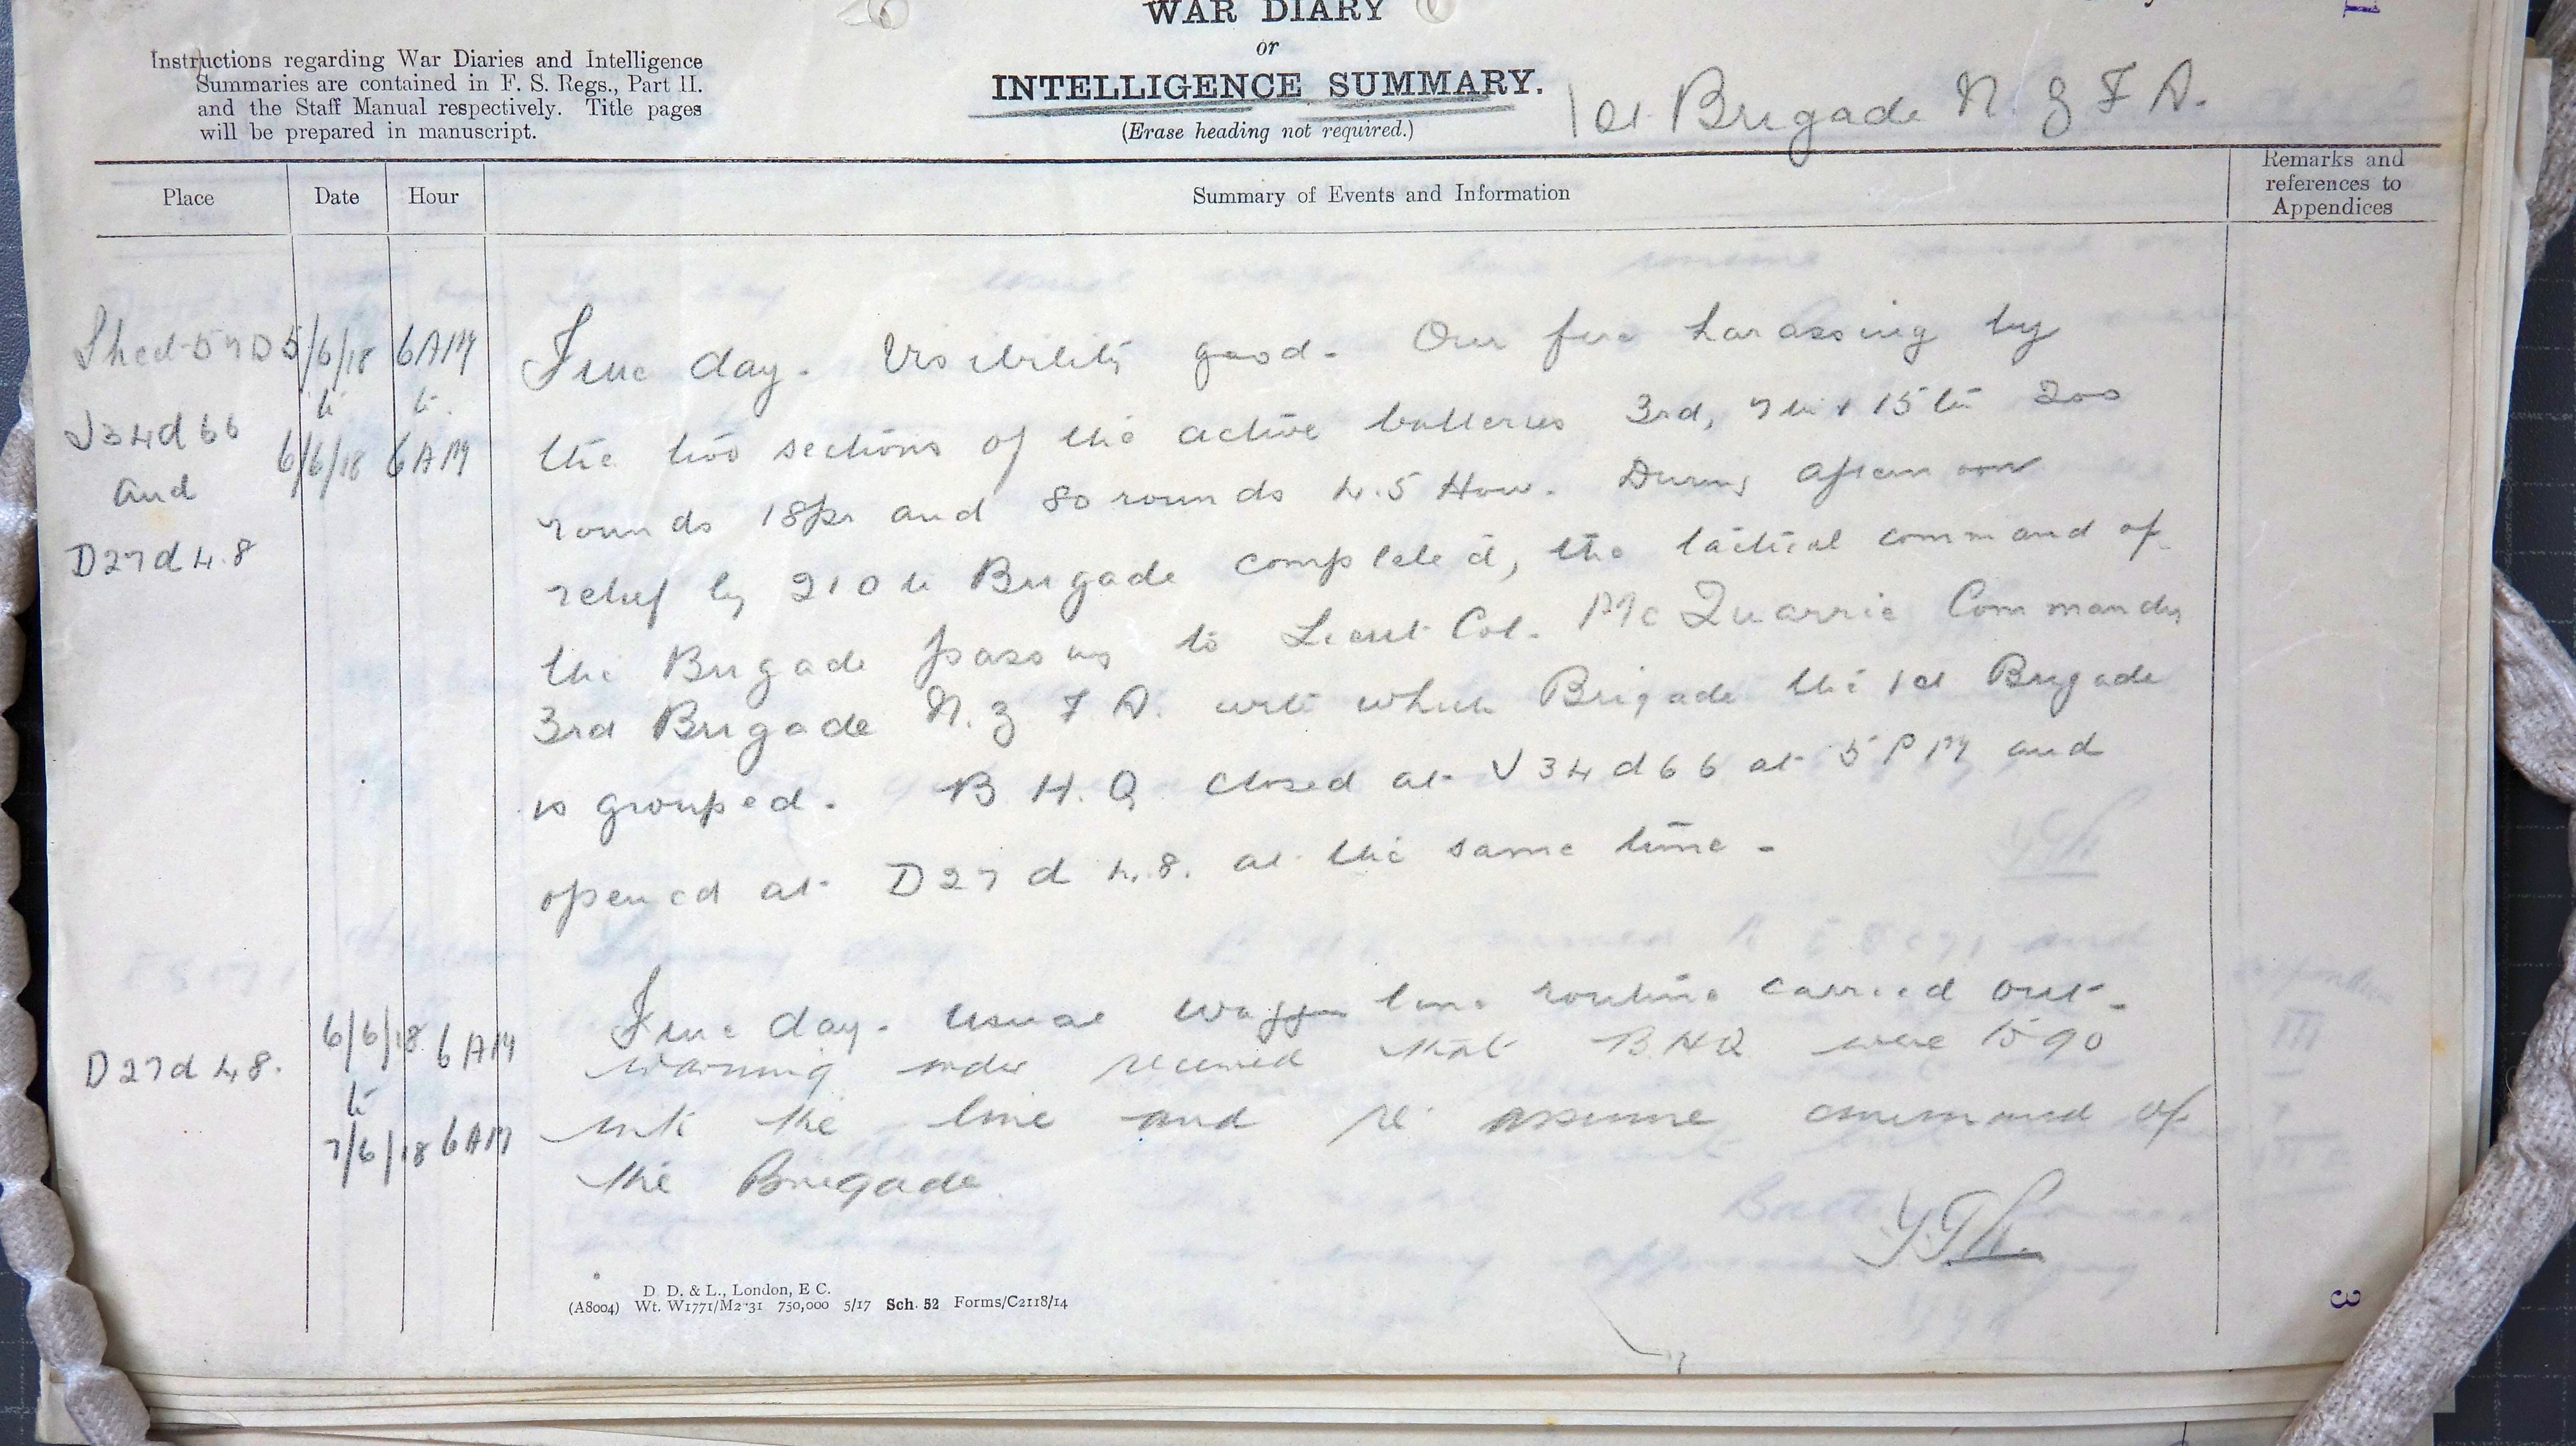 WAR DIARY
or
INTELLIGENCE SUMMARY.
(Erase heading not required.)
Instructions regarding War Diaries and Intelligence
Summaries are contained in F. S. Regs., Part II.
and the Staff Manual respectively. Title pages
will be prepared in manuscript.
1st Brigade N. Z F A.
Place Date Hour Summary of Events and Information Remarks and
references to
Appendices
Sheet 57D 5/6/18 6AM Fine day. Visibility good. Our fire harassing by
J34d66 to to the two sections of the active batteries 3rd, 7th & 15th 200
and 6/6/18 6AM rounds 18pr and 80 rounds 4.5 How. During afternoon
D27d4.8 relief by 210th Brigade completed, the tactical command of
the Brigade passing to Lieut Col. McQuarrie Commandg
3rd Brigade N. Z F A. with which Brigade the 1st Brigade
is grouped. B H. Q closed at J34d66 at 5 PM and
opened at D27d 4.8. at the same time.
D27d 4.8. 6/6/18 6AM Fine day. Usual waggon line routine carried out.
to warning order received that BHQ were to go
7/6/18 6AM into the line and re assume command of
the Brigade.
D. D. & L., London, E C.
(A8004) Wt. W1771/M2 31 750,000 5/17 Sch. 52 Forms/C2118/14
3